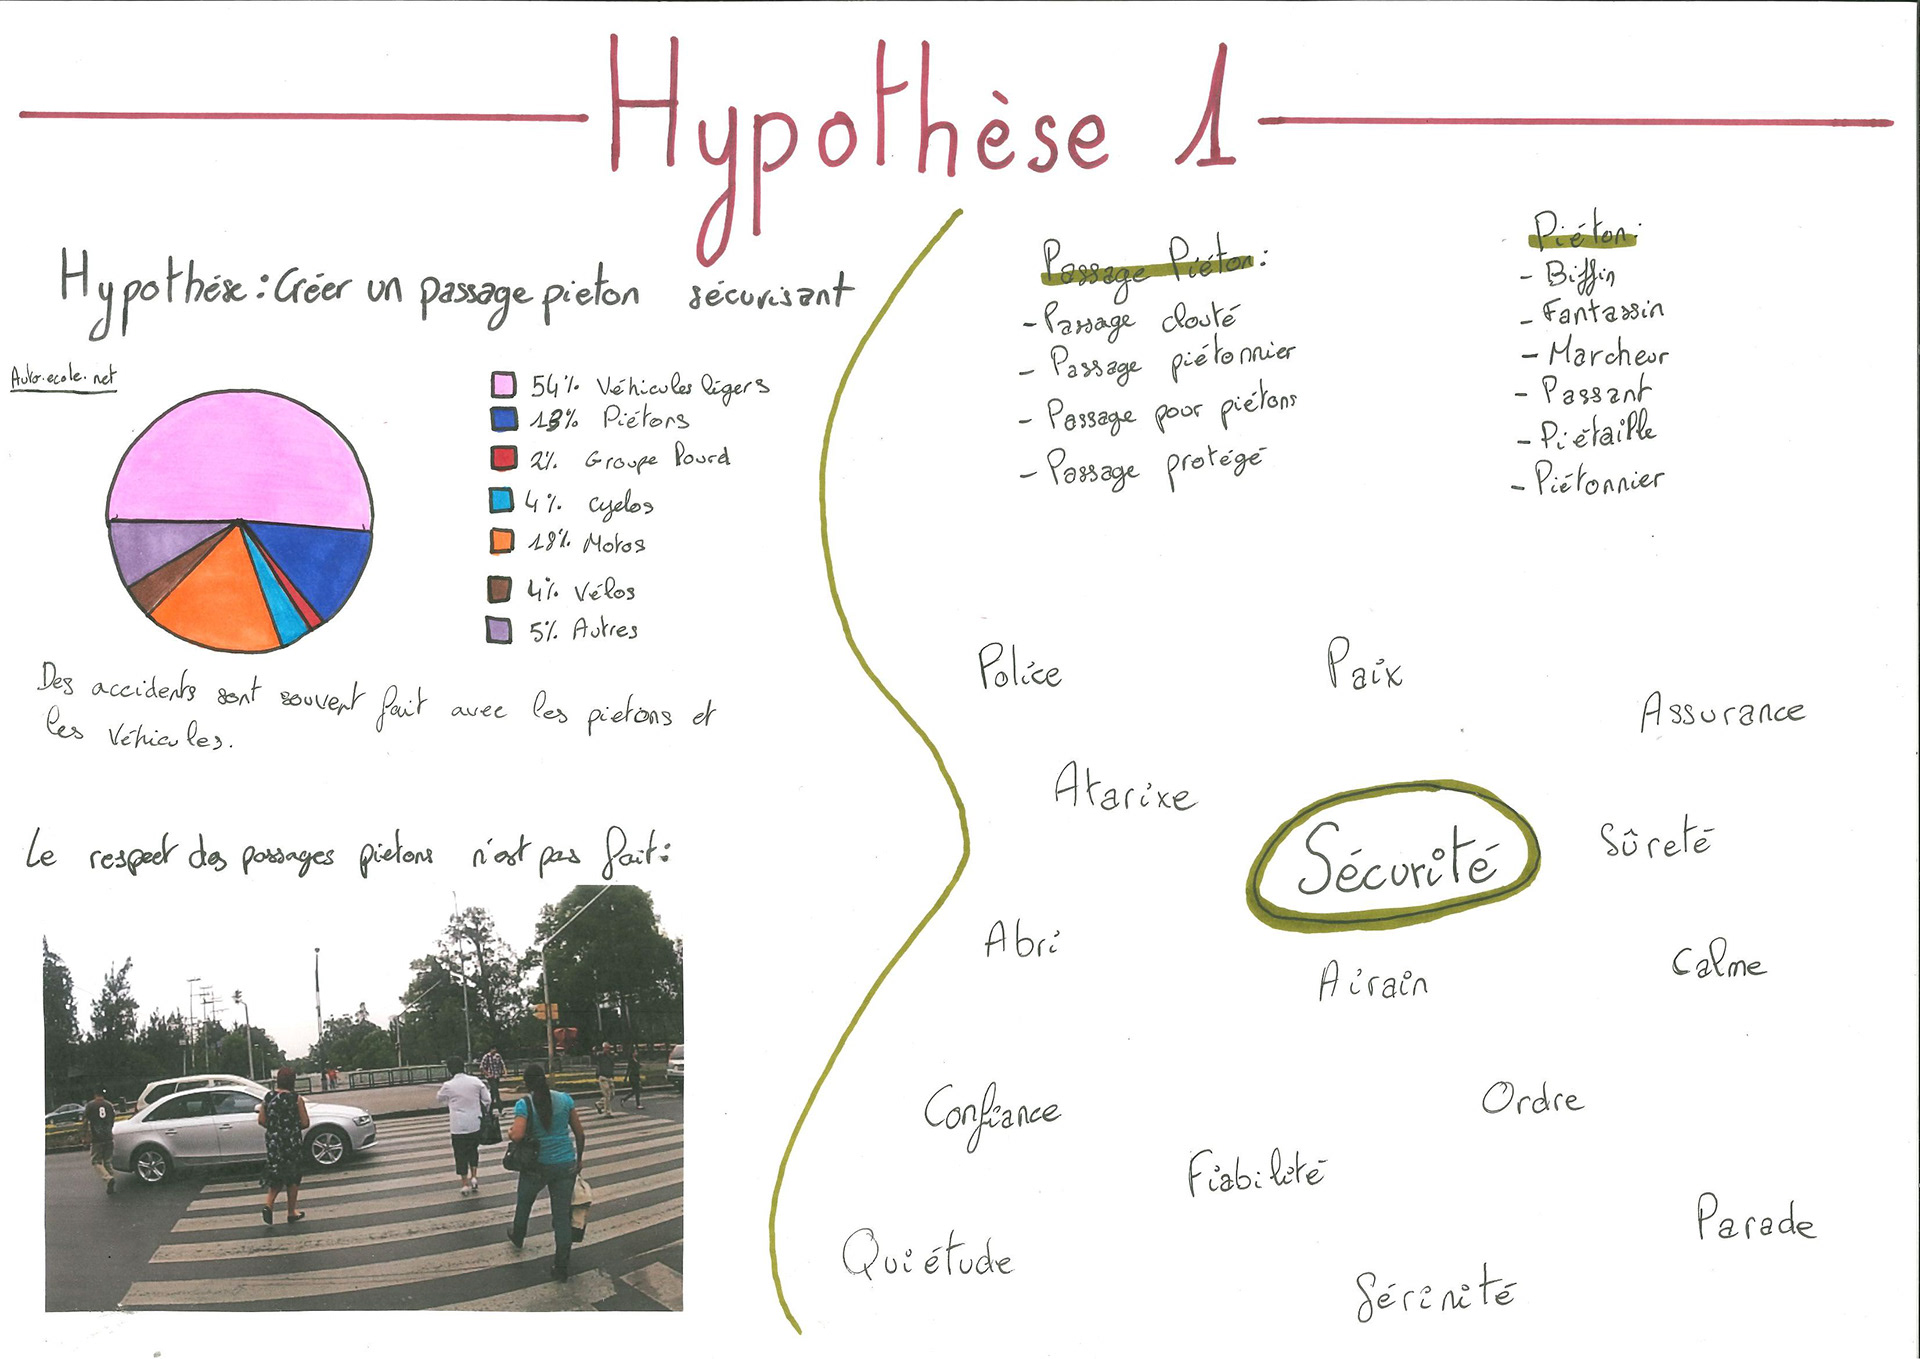 Hypothèse 1
Hypothése : Créer un passage pieton sécurisant
Auto-ecole.net
54% Véhicules légers
13% Piétons
2% Groupe lourd
4% Cyclos
18% Motos
4% Vélos
5% Autres
Des accidents sont souvent fait avec les pietons et
les véhicules.
Le respect des passages pietons n'est pas fait :
8
Passage Piéton :
- Passage clouté
- Passage piétonnier
- Passage pour piétons
- Passage protégé
Piéton :
- Biffin
- Fantassin
- Marcheur
- Passant
- Piétaille
- Piétonnier
Police
Paix
Assurance
Atarixe
Sécurité
Sûreté
Abri
Airain
Calme
Confiance
Ordre
Fiabilité
Parade
Quiétude
Sérinité